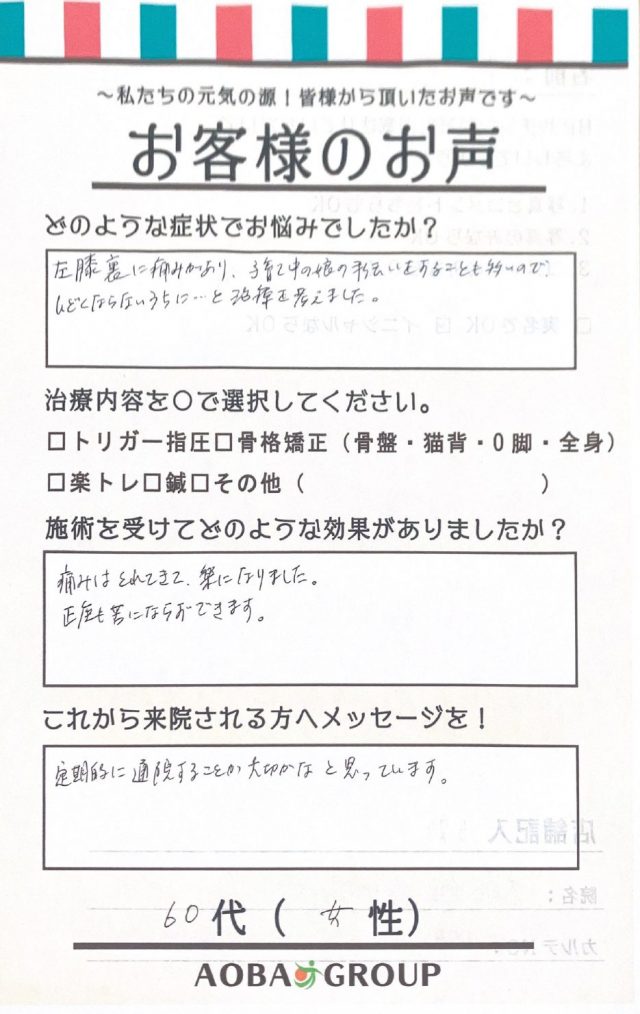 ～私たちの元気の源！皆様から頂いたお声です～
お客様のお声
どのような症状でお悩みでしたか？
左膝裏に痛みがあり、子育て中の娘の手伝いをすることも多いので、
ひどくならないうちに…と治療を考えました。
治療内容を〇で選択してください。
□トリガー指圧□骨格矯正（骨盤・猫背・O脚・全身）
□楽トレ□鍼□その他（　　　　　　　　　　）
施術を受けてどのような効果がありましたか？
痛みはとれてきて、楽になりました。
正座も苦にならずできます。
これから来院される方へメッセージを！
定期的に通院することが大切かなと思っています。
60代（女性）
AOBA GROUP
店舗記入
院名：